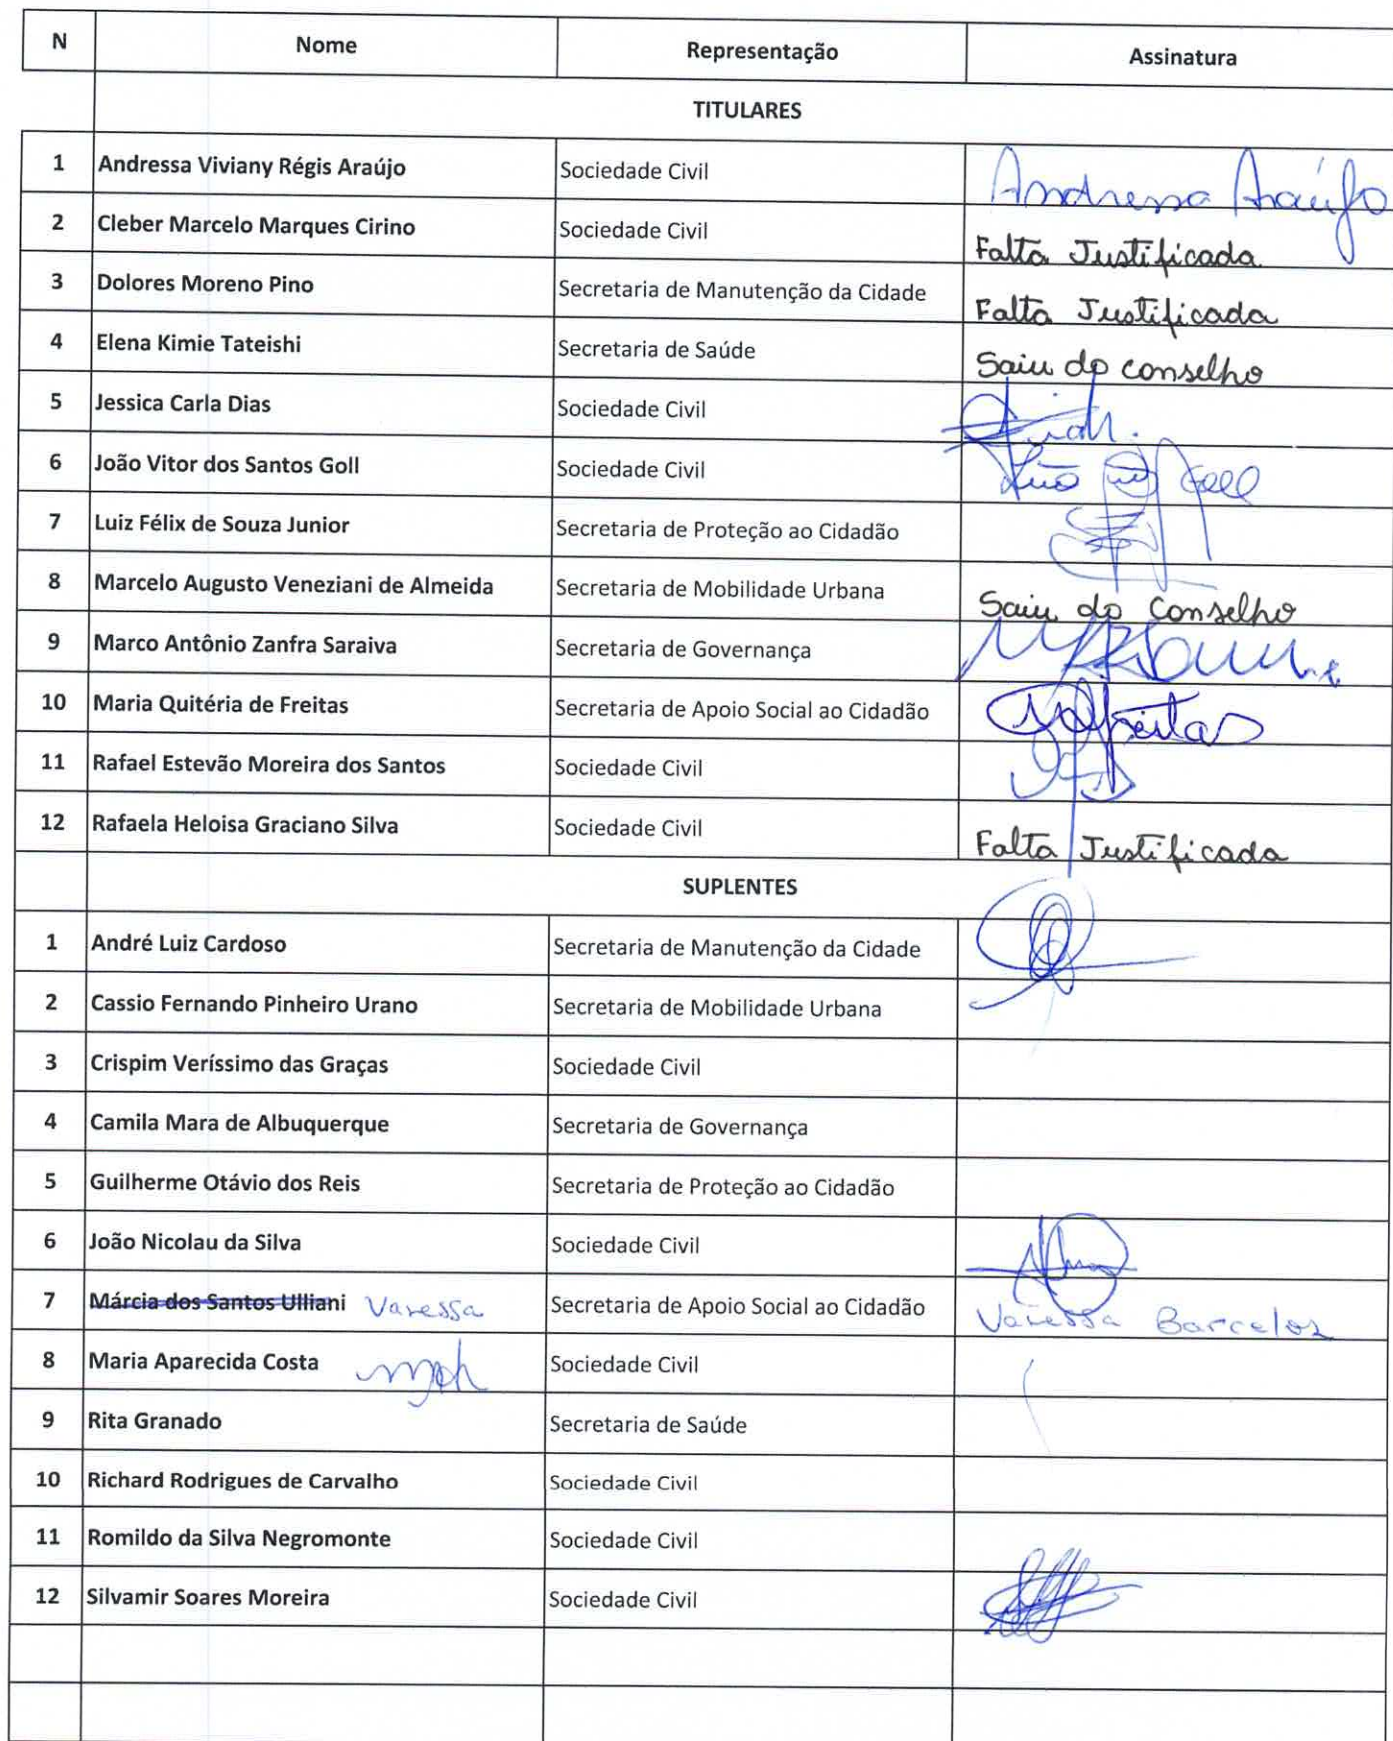 N Nome Representação Assinatura
TITULARES
1 Andressa Viviany Régis Araújo Sociedade Civil Andressa Araújo
2 Cleber Marcelo Marques Cirino Sociedade Civil Falta Justificada
3 Dolores Moreno Pino Secretaria de Manutenção da Cidade Falta Justificada
4 Elena Kimie Tateishi Secretaria de Saúde Saiu do conselho
5 Jessica Carla Dias Sociedade Civil
6 João Vitor dos Santos Goll Sociedade Civil Goll
7 Luiz Félix de Souza Junior Secretaria de Proteção ao Cidadão
8 Marcelo Augusto Veneziani de Almeida Secretaria de Mobilidade Urbana Saiu do Conselho
9 Marco Antônio Zanfra Saraiva Secretaria de Governança
10 Maria Quitéria de Freitas Secretaria de Apoio Social ao Cidadão Freitas
11 Rafael Estevão Moreira dos Santos Sociedade Civil
12 Rafaela Heloisa Graciano Silva Sociedade Civil Falta Justificada
SUPLENTES
1 André Luiz Cardoso Secretaria de Manutenção da Cidade
2 Cassio Fernando Pinheiro Urano Secretaria de Mobilidade Urbana
3 Crispim Veríssimo das Graças Sociedade Civil
4 Camila Mara de Albuquerque Secretaria de Governança
5 Guilherme Otávio dos Reis Secretaria de Proteção ao Cidadão
6 João Nicolau da Silva Sociedade Civil
7 Márcia dos Santos Ulliani Vanessa Secretaria de Apoio Social ao Cidadão Vanessa Barcelos
8 Maria Aparecida Costa Sociedade Civil
9 Rita Granado Secretaria de Saúde
10 Richard Rodrigues de Carvalho Sociedade Civil
11 Romildo da Silva Negromonte Sociedade Civil
12 Silvamir Soares Moreira Sociedade Civil